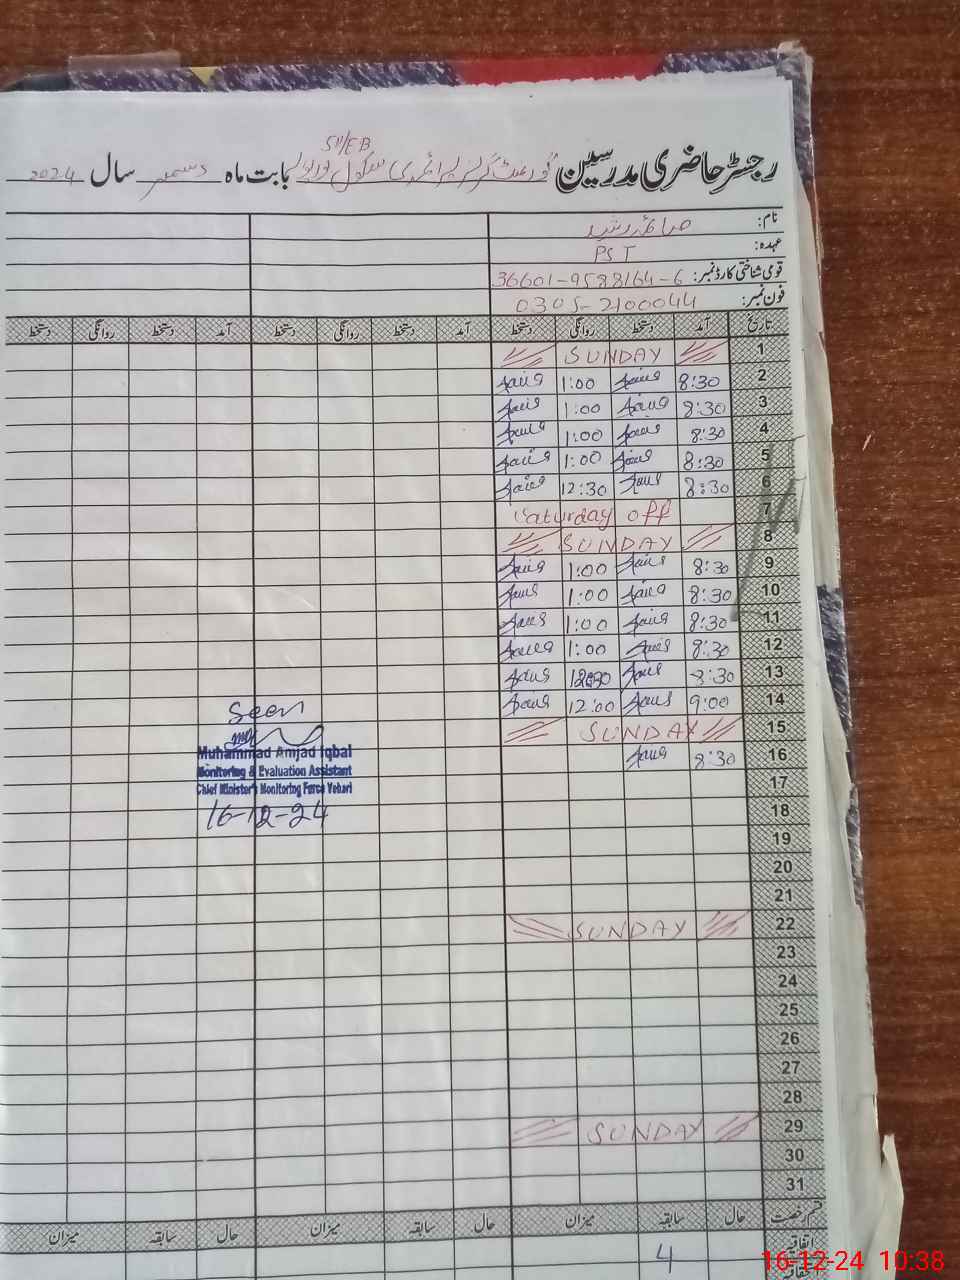 511/EB
رجسٹر حاضری مدرسین گورنمنٹ گرلز پرائمری سکول بابت ماہ دسمبر سال 2024
نام: صائمہ رشید
عہدہ: PST
قومی شناختی کارڈ نمبر: 36601-9588164-6
فون نمبر: 0305-2100044
تاریخ آمد دستخط روانگی دستخط آمد دستخط روانگی دستخط آمد دستخط روانگی دستخط
1 SUNDAY
2 8:30 1:00
3 8:30 1:00
4 8:30 1:00
5 8:30 1:00
6 8:30 12:30
7 Saturday off
8 SUNDAY
9 8:30 1:00
10 8:30 1:00
11 8:30 1:00
12 8:30 1:00
13 8:30 12:30
14 9:00 12:00
15 SUNDAY
16 8:30
17
18
19
20
21
22 SUNDAY
23
24
25
26
27
28
29 SUNDAY
30
31
Seen
Muhammad Amjad Iqbal
Monitoring & Evaluation Assistant
Chief Minister's Monitoring Force Vehari
16-12-24
قسم رخصت حال سابقہ میزان حال سابقہ میزان حال سابقہ میزان
اتفاقیہ 4
16-12-24 10:38